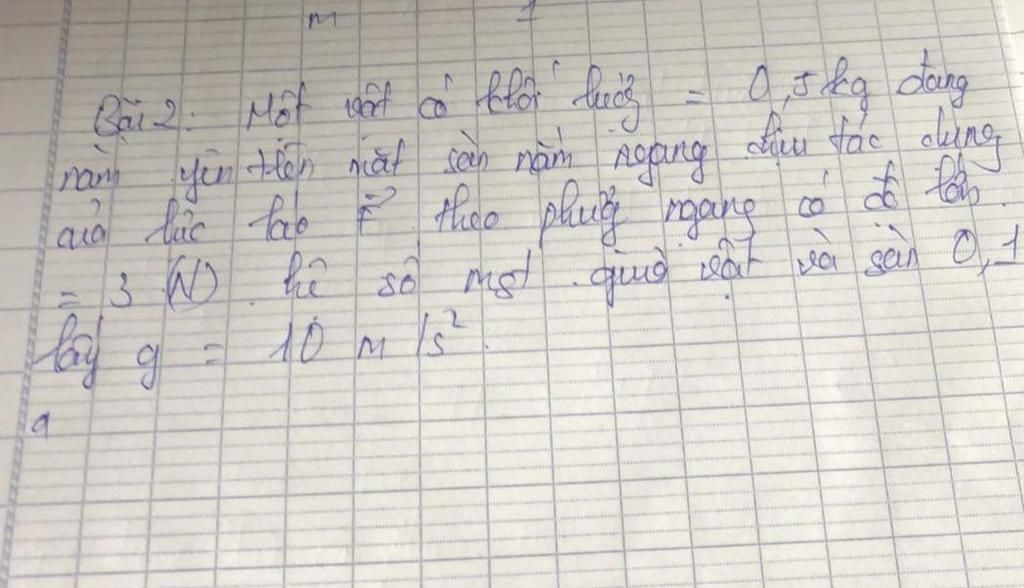 m 1
Bài 2: Một vật có khối lượng = 0,5 kg đang
nằm yên trên mặt sàn nằm ngang chịu tác dụng
của lực kéo F theo phương ngang có độ lớn
= 3 (N). hệ số mst giữa vật và sàn 0,1
lấy g = 10 m/s².
a